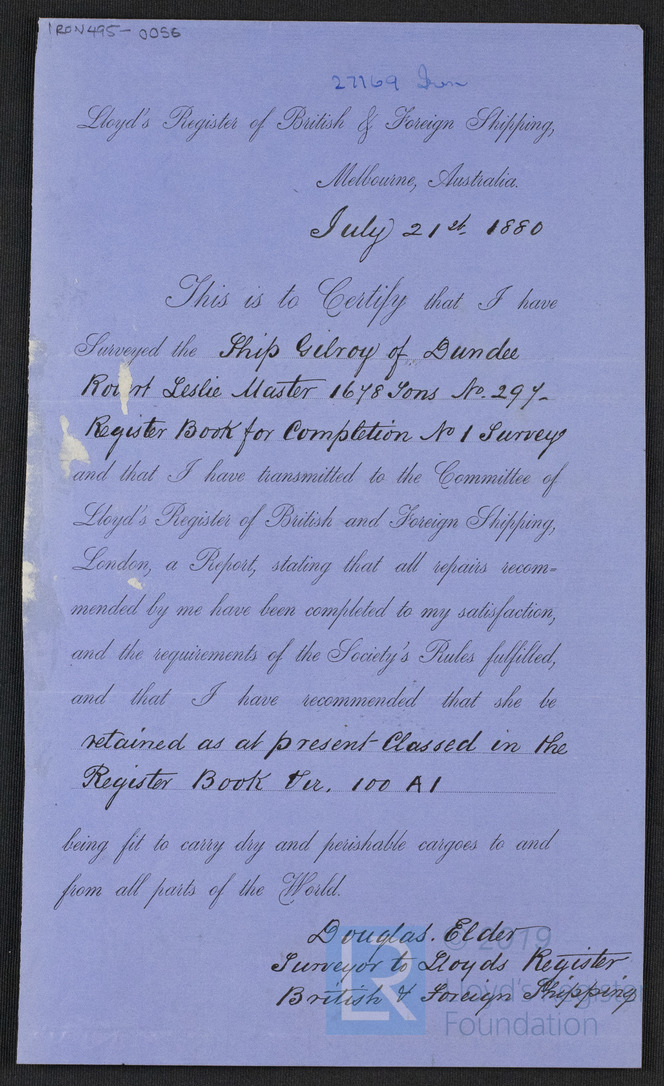 IRON495-0056
27169 Iron
Lloyd's Register of British & Foreign Shipping,
Melbourne, Australia.
July 21st. 1880
This is to Certify that I have
Surveyed the Ship Gilroy of Dundee
Robert Leslie Master 1678 Tons No. 297-
Register Book for Completion No 1 Survey
and that I have transmitted to the Committee of
Lloyd's Register of British and Foreign Shipping,
London, a Report, stating that all repairs recom=
mended by me have been completed to my satisfaction,
and the requirements of the Society's Rules fulfilled,
and that I have recommended that she be
retained as at present Classed in the
Register Book Viz. 100 A1
being fit to carry dry and perishable cargoes to and
from all parts of the World.
Douglas. Elder
Surveyor to Lloyds Register
British & Foreign Shipping
LR
© 2019
Lloyd's Register
Foundation